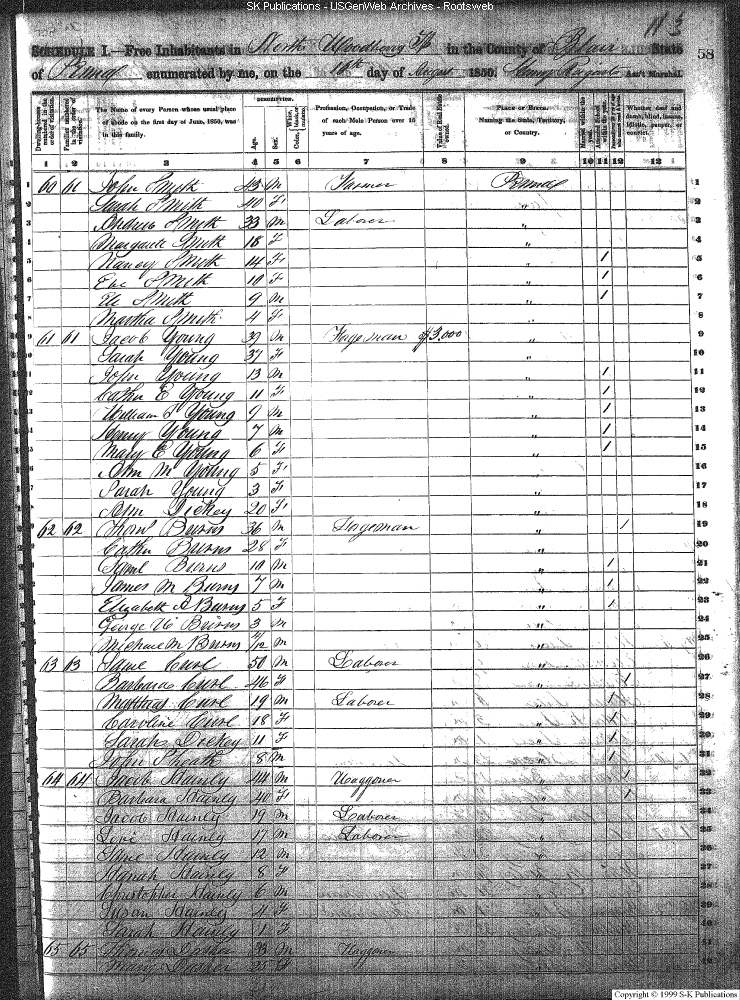 SK Publications - USGenWeb Archives - Rootsweb
58
SCHEDULE I.—Free Inhabitants in North Woodberry Tp in the County of Blair State
of Penna enumerated by me, on the 10th day of August 1850. Ass't Marshal.
DESCRIPTION.
Dwelling-houses numbered in the order of visitation.
Families numbered in the order of visitation.
The Name of every Person whose usual place of abode on the first day of June, 1850, was in this family.
Age.
Sex.
Color, White, black, or mulatto.
Profession, Occupation, or Trade of each Male Person over 15 years of age.
Value of Real Estate owned.
Place of Birth. Naming the State, Territory, or Country.
Married within the year.
Attended School within the year.
Whether deaf and dumb, blind, insane, idiotic, pauper, or convict.
1 2 3 4 5 6 7 8 9 10 11 12 13
1 60 61 John Smith 43 M Farmer Penna 1
Sarah Smith 40 F " 2
3 Andrew Smith 33 M Laborer " 3
Margaret Smith 18 F " 4
5 Nancy Smith 14 F " 1 5
Eve Smith 10 F " 1 6
Eli Smith 9 M " 1 7
Martha Smith 4 F " 8
61 61 Jacob Young 39 M Forgeman $3,000 " 9
Sarah Young 37 F " 10
John Young 13 M " 1 11
Cathn E Young 11 F " 1 12
William S Young 9 M " 1 13
Henry Young 7 M " 1 14
Mary E Young 6 F " 1 15
Ann M Young 5 F " 16
Sarah Young 3 F " 17
Ann Dickey 20 F " 18
62 62 Thom Burns 36 M Forgeman " / 19
Cathn Burns 28 F " 20
Saml Burns 10 M " 1 21
James M Burns 7 M " 1 22
Elizabeth A Burns 5 F " 1 23
George W Burns 3 M " 24
Michael M Burns /12 M " 25
63 63 Curl 50 M Laborer " 26
Barbara Curl 46 F " / 27
Curl 19 M Laborer " 1 28
Caroline Curl 18 F " 1 29
Sarah Dickey 11 F " 1 30
John 8 M " 1 31
64 64 Jacob Hainly 44 M Waggoner " / 32
Barbara Hainly 40 F " / 33
Jacob Hainly 19 M Laborer "
Levi Hainly 17 M Laborer "
Hainly 12 M "
Hanah Hainly 8 F "
Christopher Hainly 6 M "
Susan Hainly 4 F "
Sarah Hainly 1 F "
65 65 Thomas 33 M Waggoner
Mary 35 F
Copyright © 1999 S-K Publications